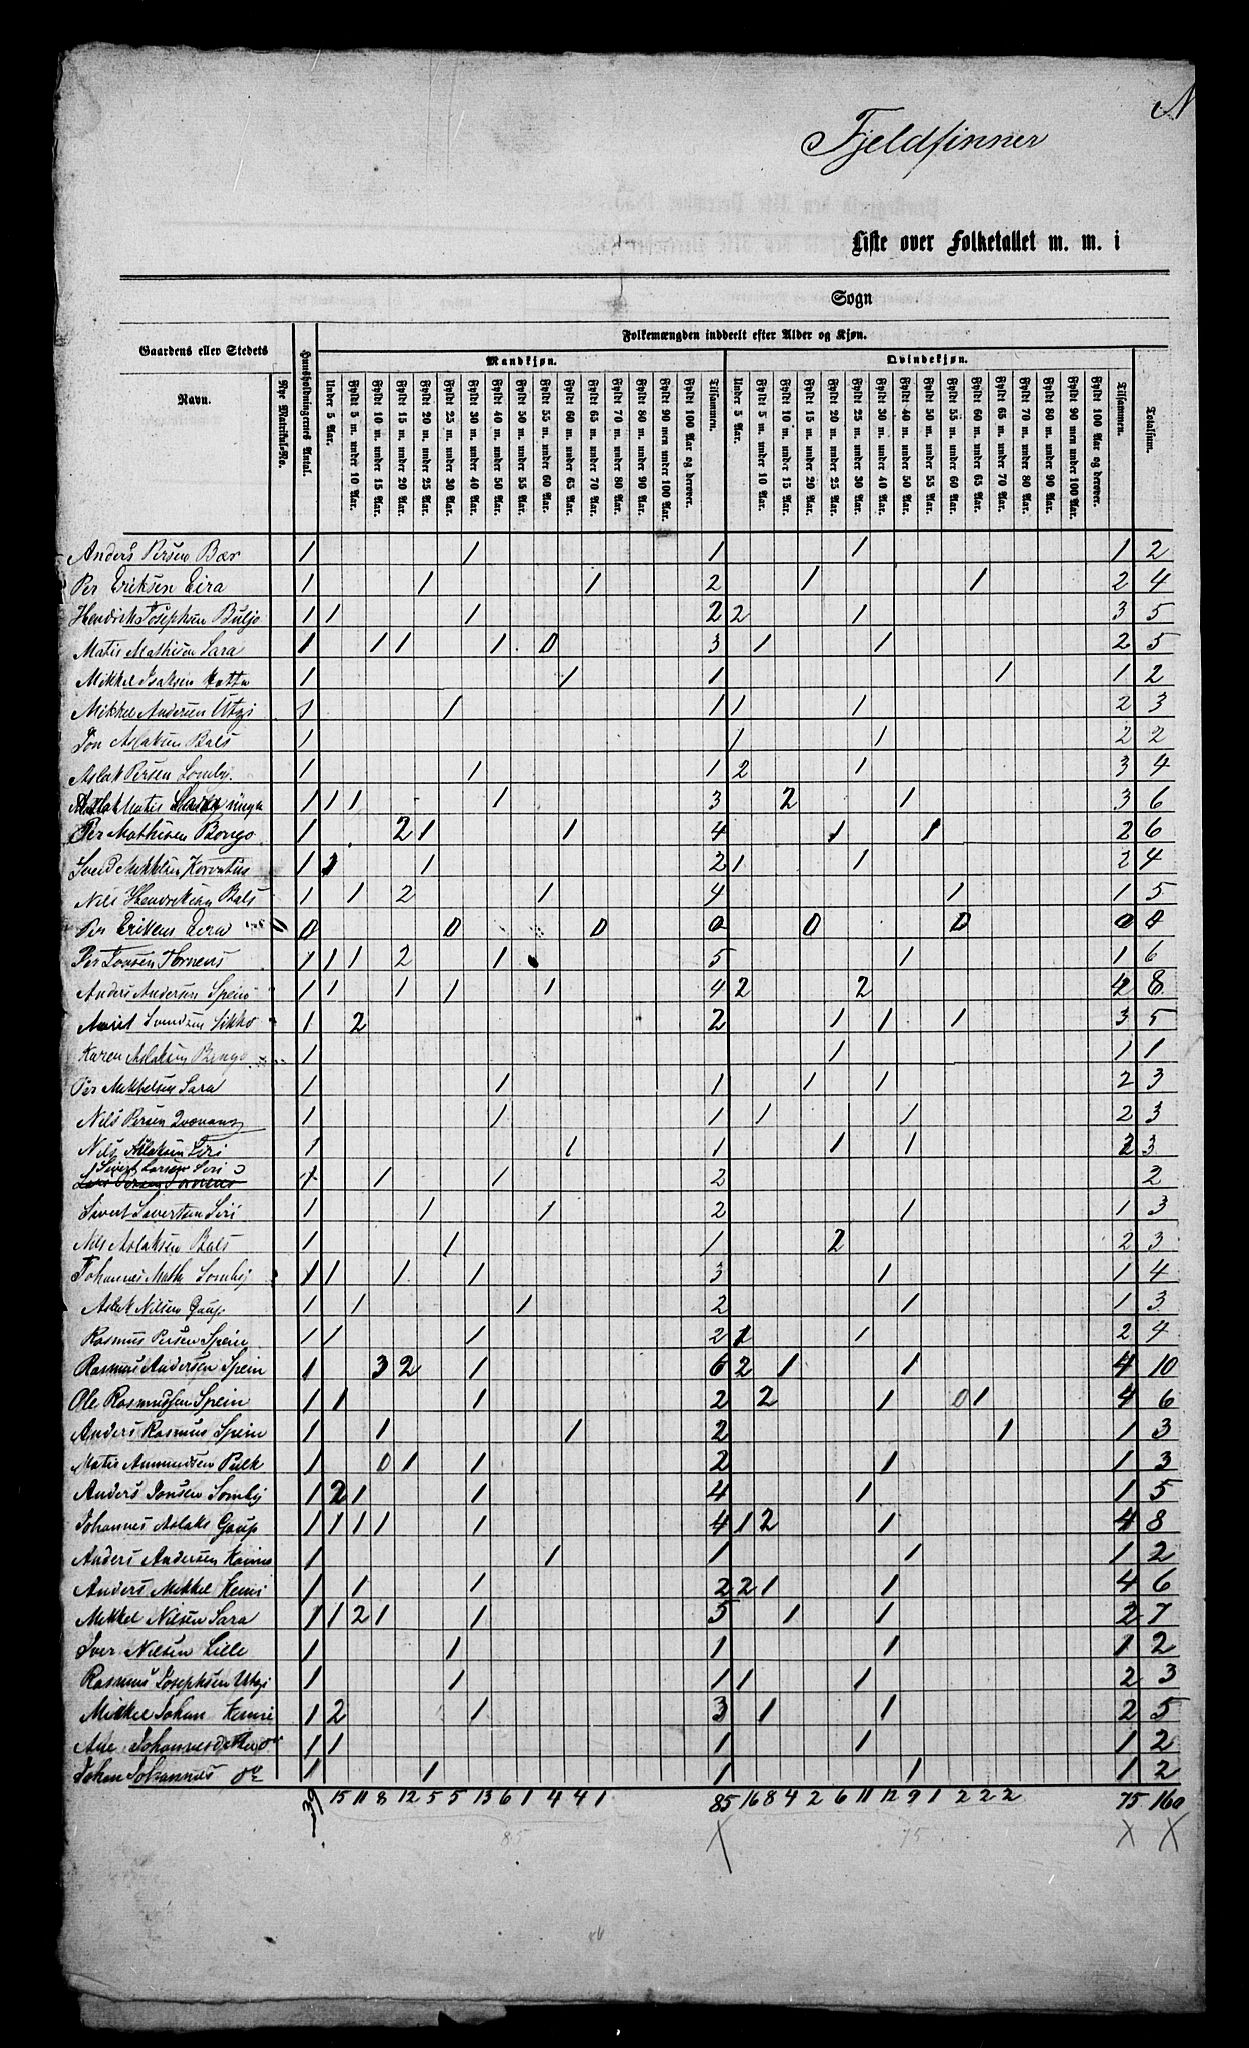 N
Fjeldfinner
Liste over Folketallet m. m. i
Sogn
Gaardens eller Stedets
Navn.
Nye Matrikul-No.
Huusholdningernes Antal.
Folkemængden inddeelt efter Alder og Kjøn.
Mandkjøn.
Qvindekjøn.
Under 5 Aar.
Fyldt 5 m. under 10 Aar.
Fyldt 10 m. under 15 Aar.
Fyldt 15 m. under 20 Aar.
Fyldt 20 m. under 25 Aar.
Fyldt 25 m. under 30 Aar.
Fyldt 30 m. under 40 Aar.
Fyldt 40 m. under 50 Aar.
Fyldt 50 m. under 55 Aar.
Fyldt 55 m. under 60 Aar.
Fyldt 60 m. under 65 Aar.
Fyldt 65 m. under 70 Aar.
Fyldt 70 m. under 80 Aar.
Fyldt 80 m. under 90 Aar.
Fyldt 90 men under 100 Aar.
Fyldt 100 Aar og derover.
Tilsammen.
Under 5 Aar.
Fyldt 5 m. under 10 Aar.
Fyldt 10 m. under 15 Aar.
Fyldt 15 m. under 20 Aar.
Fyldt 20 m. under 25 Aar.
Fyldt 25 m. under 30 Aar.
Fyldt 30 m. under 40 Aar.
Fyldt 40 m. under 50 Aar.
Fyldt 50 m. under 55 Aar.
Fyldt 55 m. under 60 Aar.
Fyldt 60 m. under 65 Aar.
Fyldt 65 m. under 70 Aar.
Fyldt 70 m. under 80 Aar.
Fyldt 80 m. under 90 Aar.
Fyldt 90 men under 100 Aar.
Fyldt 100 Aar og derover.
Tilsammen.
Totalsum.
Anders Persen Bær 1 1 1 1 1 2
Per Eriksen Eira 1 1 1 2 1 1 2 4
Hendrik Josephsen Buljo 1 1 1 2 2 1 3 5
Matis Mathisen Sara 1 1 1 1 0 3 1 1 2 5
Mikkel Isaksen 1 1 1 1 1 2
Mikkel Andersen Utzi 1 1 1 1 1 2 3
Jon Aslaksen Bals 1 1 1 2 2
Aslak Persen Somby. 1 1 1 2 1 3 4
Aslak Matis 1 1 1 1 3 2 1 3 6
Per Mathisen Bongo 1 2 1 1 4 1 1 2 6
Svend Mikkelsen 1 1 1 2 1 1 2 4
Nils Hendriksen Bals 1 1 2 1 4 1 1 5
Per Eriksen Eira 0 0 0 0 0 0 0 0 0
Per Jonsen Tornens 1 1 1 2 1 5 1 1 6
Anders Andersen Spein 1 1 1 1 1 4 2 2 4 8
Svendsen Sikko 1 2 2 1 1 1 3 5
Karen Aslaksen Bongo 1 1 1 1
Per Mikkelsen Sara 1 1 1 1 1 2 3
Nils Persen 1 1 1 1 1 2 3
Nils Aslaksen Siri 1 1 1 1 1 2 3
Sivert Larsen Siri
1 1 1 2 2
Sivert Sivertsen Siri 1 1 1 2 1 1 3
Nils Aslaksen Bals 1 1 1 2 2 3
Johannes Math. Somby 1 1 1 1 3 1 1 4
Aslak Nilsen Gaup 1 1 1 2 1 1 3
Rasmus Persen Spein 1 1 1 2 1 1 2 4
Rasmus Andersen Spein 1 3 2 1 6 2 1 1 4 10
Ole Rasmussen Spein 1 1 1 2 2 1 0 1 4 6
Anders Rasmus Spein 1 1 1 2 1 1 3
Matis Ammundsen Pulk 1 0 1 1 2 1 1 3
Anders Jonsen Somby 1 2 1 1 4 1 1 5
Johannes Aslaks Gaup 1 1 1 1 1 4 1 2 1 4 8
Anders Andersen 1 1 1 1 1 2
Anders Mikkel Kemi 1 1 1 2 2 1 1 4 6
Mikkel Nilsen Sara 1 1 2 1 1 5 1 1 2 7
Iver Nilsen Lille 1 1 1 1 1 2
Rasmus Josephsen Utzi 1 1 1 1 1 2 3
Mikkel Johan Kemi 1 2 1 3 1 1 2 5
Ane 1 1 1 1 1 2
Johan Johannes do 1 1 1 1 1 2
39 15 11 8 12 5 5 13 6 1 4 4 1 85 16 8 4 2 6 11 12 9 1 2 2 2 75 160
85 75